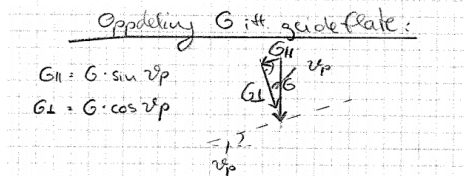 Oppdeling G ift. guideflate:
G॥ = G · sin υp
G⊥ = G · cos υp
G॥
υp
G⊥
G
υp